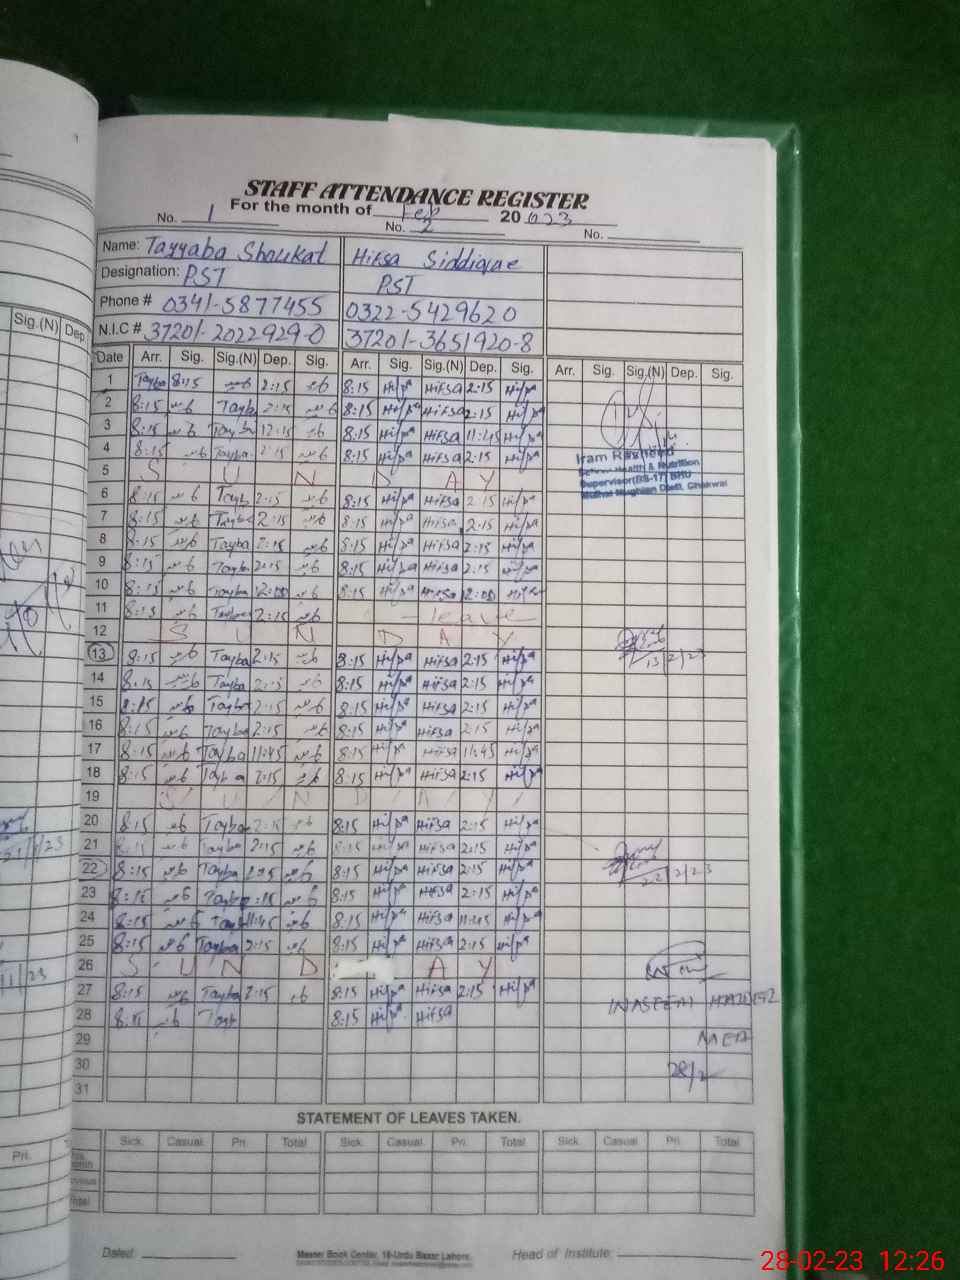 STAFF ATTENDANCE REGISTER
For the month of Feb 2023
No. 1 No. 2 No.
Name: Tayyaba Shaukat Hifsa Siddique
Designation: PST PST
Phone # 0341-5877455 0322-5429620
N.I.C # 37201-2022929-0 37201-3651920-8
Date Arr. Sig. Sig.(N) Dep. Sig. Arr. Sig. Sig.(N) Dep. Sig. Arr. Sig. Sig.(N) Dep. Sig.
1 Tayba 8:15 2:15 8:15 Hifsa Hifsa 2:15 Hifsa
2 8:15 Tayb 2:15 8:15 Hifsa Hifsa 2:15 Hifsa
3 8:15 Tayba 12:15 8:15 Hifsa Hifsa 11:45 Hifsa
4 8:15 Tayba 2:15 8:15 Hifsa Hifsa 2:15 Hifsa
Iram Rasheed
School Health & Nutrition
Supervisor(BS-17) BHU
Mulhal Mughlan Distt. Chakwal
5 S U N D A Y
6 8:15 Tayb 2:15 8:15 Hifsa Hifsa 2:15 Hifsa
7 8:15 Tayba 2:15 8:15 Hifsa Hifsa 2:15 Hifsa
8 8:15 Tayba 2:15 8:15 Hifsa Hifsa 2:15 Hifsa
9 8:15 Tayba 2:15 8:15 Hifsa Hifsa 2:15 Hifsa
10 8:15 Tayba 12:00 8:15 Hifsa Hifsa 12:00 Hifsa
11 8:15 Tayba 2:15 leave
12 S U N D A Y
13 8:15 Tayba 2:15 8:15 Hifsa Hifsa 2:15 Hifsa 13/2/23
14 8:15 Tayba 2:15 8:15 Hifsa Hifsa 2:15 Hifsa
15 8:15 Tayba 2:15 8:15 Hifsa Hifsa 2:15 Hifsa
16 8:15 Tayba 2:15 8:15 Hifsa Hifsa 2:15 Hifsa
17 8:15 Tayba 11:45 8:15 Hifsa Hifsa 11:45 Hifsa
18 8:15 Tayba 2:15 8:15 Hifsa Hifsa 2:15 Hifsa
19 S U N D A Y
20 8:15 Tayba 2:15 8:15 Hifsa Hifsa 2:15 Hifsa
21 8:15 Tayba 2:15 8:15 Hifsa Hifsa 2:15 Hifsa
22 8:15 Tayba 2:15 8:15 Hifsa Hifsa 2:15 Hifsa 22/2/23
23 8:15 Tayba 2:15 8:15 Hifsa Hifsa 2:15 Hifsa
24 8:15 Tayba 11:45 8:15 Hifsa Hifsa 11:45 Hifsa
25 8:15 Tayba 2:15 8:15 Hifsa Hifsa 2:15 Hifsa
26 S U N D A Y
27 8:15 Tayba 2:15 8:15 Hifsa Hifsa 2:15 Hifsa
NASEEM HAIDER
28 8:15 Tayb 8:15 Hifsa Hifsa
29 MEA
30 28/2
31
STATEMENT OF LEAVES TAKEN.
Sick. Casual. Pri. Total Sick. Casual. Pri. Total Sick. Casual. Pri. Total
Dated Master Book Center, 16-Urdu Bazar Lahore. Head of Institute:
Sig.(N) Dep.
Pri.
28-02-23 12:26